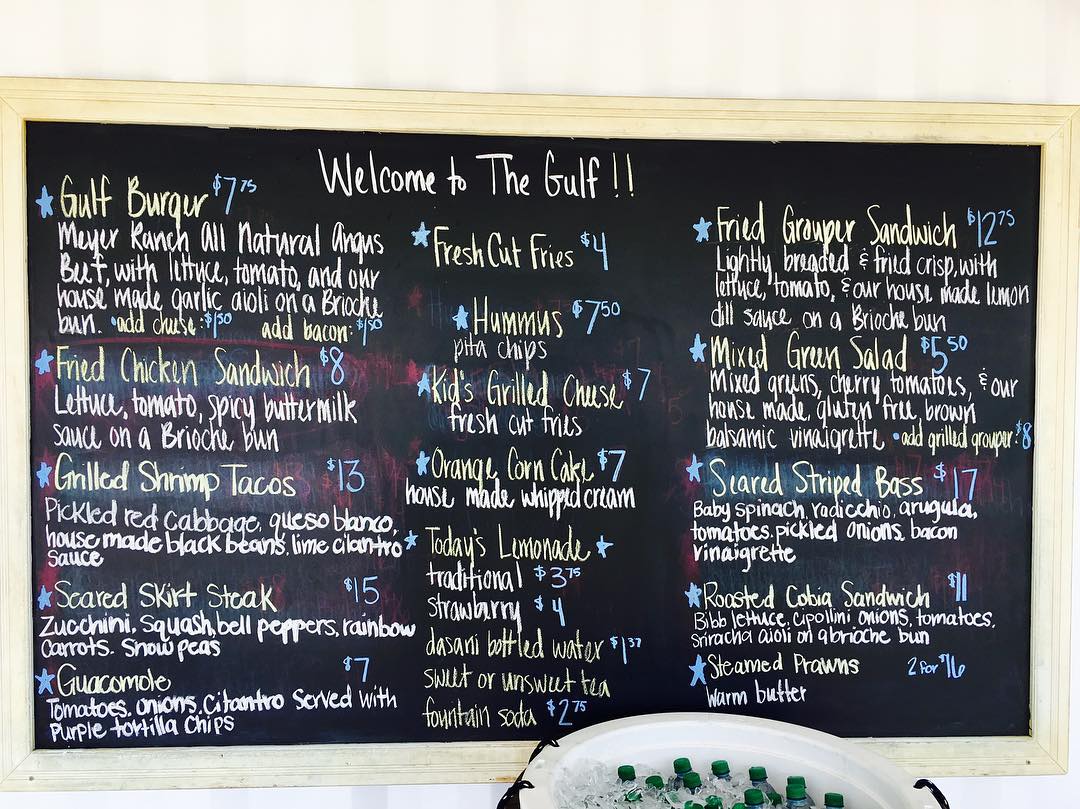 Welcome to The Gulf !!
Gulf Burger $7.75
Meyer Ranch All Natural Angus
Beef, with lettuce, tomato, and our
house made garlic aioli on a Brioche
bun. • add cheese: $1.50 add bacon: $1.50
Fried Chicken Sandwich $8
Lettuce, tomato, spicy buttermilk
sauce on a Brioche bun
Grilled Shrimp Tacos $13
Pickled red cabbage, queso blanco,
house made black beans, lime cilantro
sauce
Seared Skirt Steak $15
Zucchini, squash, bell peppers, rainbow
carrots, snow peas
Guacamole $7
Tomatoes, onions, cilantro served with
purple tortilla chips
Fresh Cut Fries $4
Hummus $7.50
pita chips
Kid's Grilled Cheese $7
fresh cut fries
Orange Corn Cake $7
house made whipped cream
Today's Lemonade
traditional $3.75
strawberry $4
dasani bottled water $1.37
sweet or unsweet tea
fountain soda $2.75
Fried Grouper Sandwich $12.75
Lightly breaded & fried crisp, with
lettuce, tomato, & our house made lemon
dill sauce on a Brioche bun
Mixed Green Salad $5.50
Mixed greens, cherry tomatoes, & our
house made, gluten free, brown
balsamic vinaigrette • add grilled grouper: $8
Seared Striped Bass $17
Baby spinach, radicchio, arugula,
tomatoes, pickled onions, bacon
vinaigrette
Roasted Cobia Sandwich $11
Bibb lettuce, cipollini onions, tomatoes,
sriracha aioli on a brioche bun
Steamed Prawns 2 for $16
Warm butter